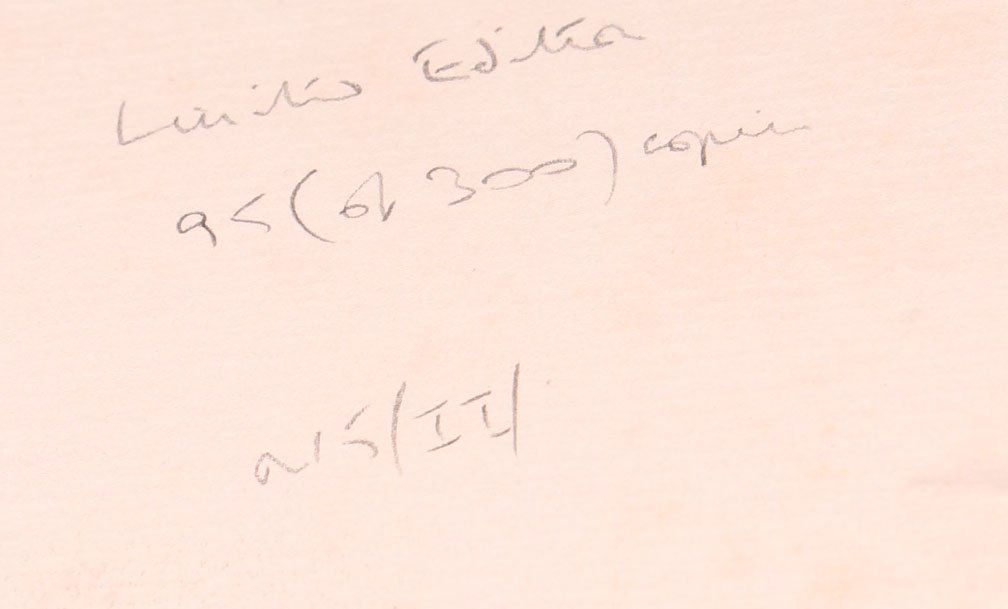 Limited Edition
95 (of 300) copies
a15/II/